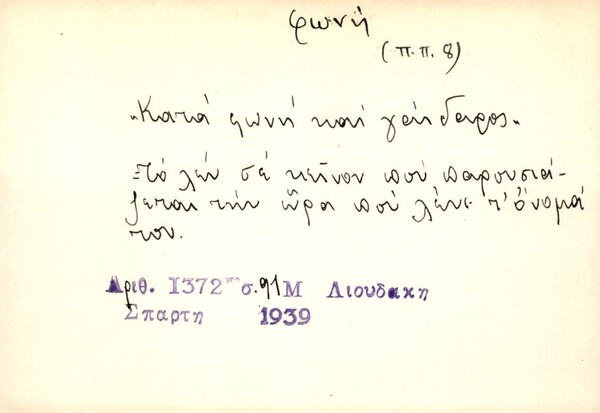 φωνή
(π.π. 8)
"Κατά φωνή καί γάϊδαρος"
Τό λέν σέ κεῖνον πού παρουσιά-
ζεται τήν ὥρα πού λένε τ' ὄνομά
του.
Αριθ. 1372 σ. 91 Μ Λιουδακη
Σπαρτη 1939